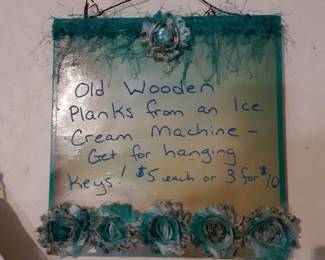 Old Wooden
Planks from an Ice
Cream Machine -
Get for hanging
Keys! $5 each or 3 for $10